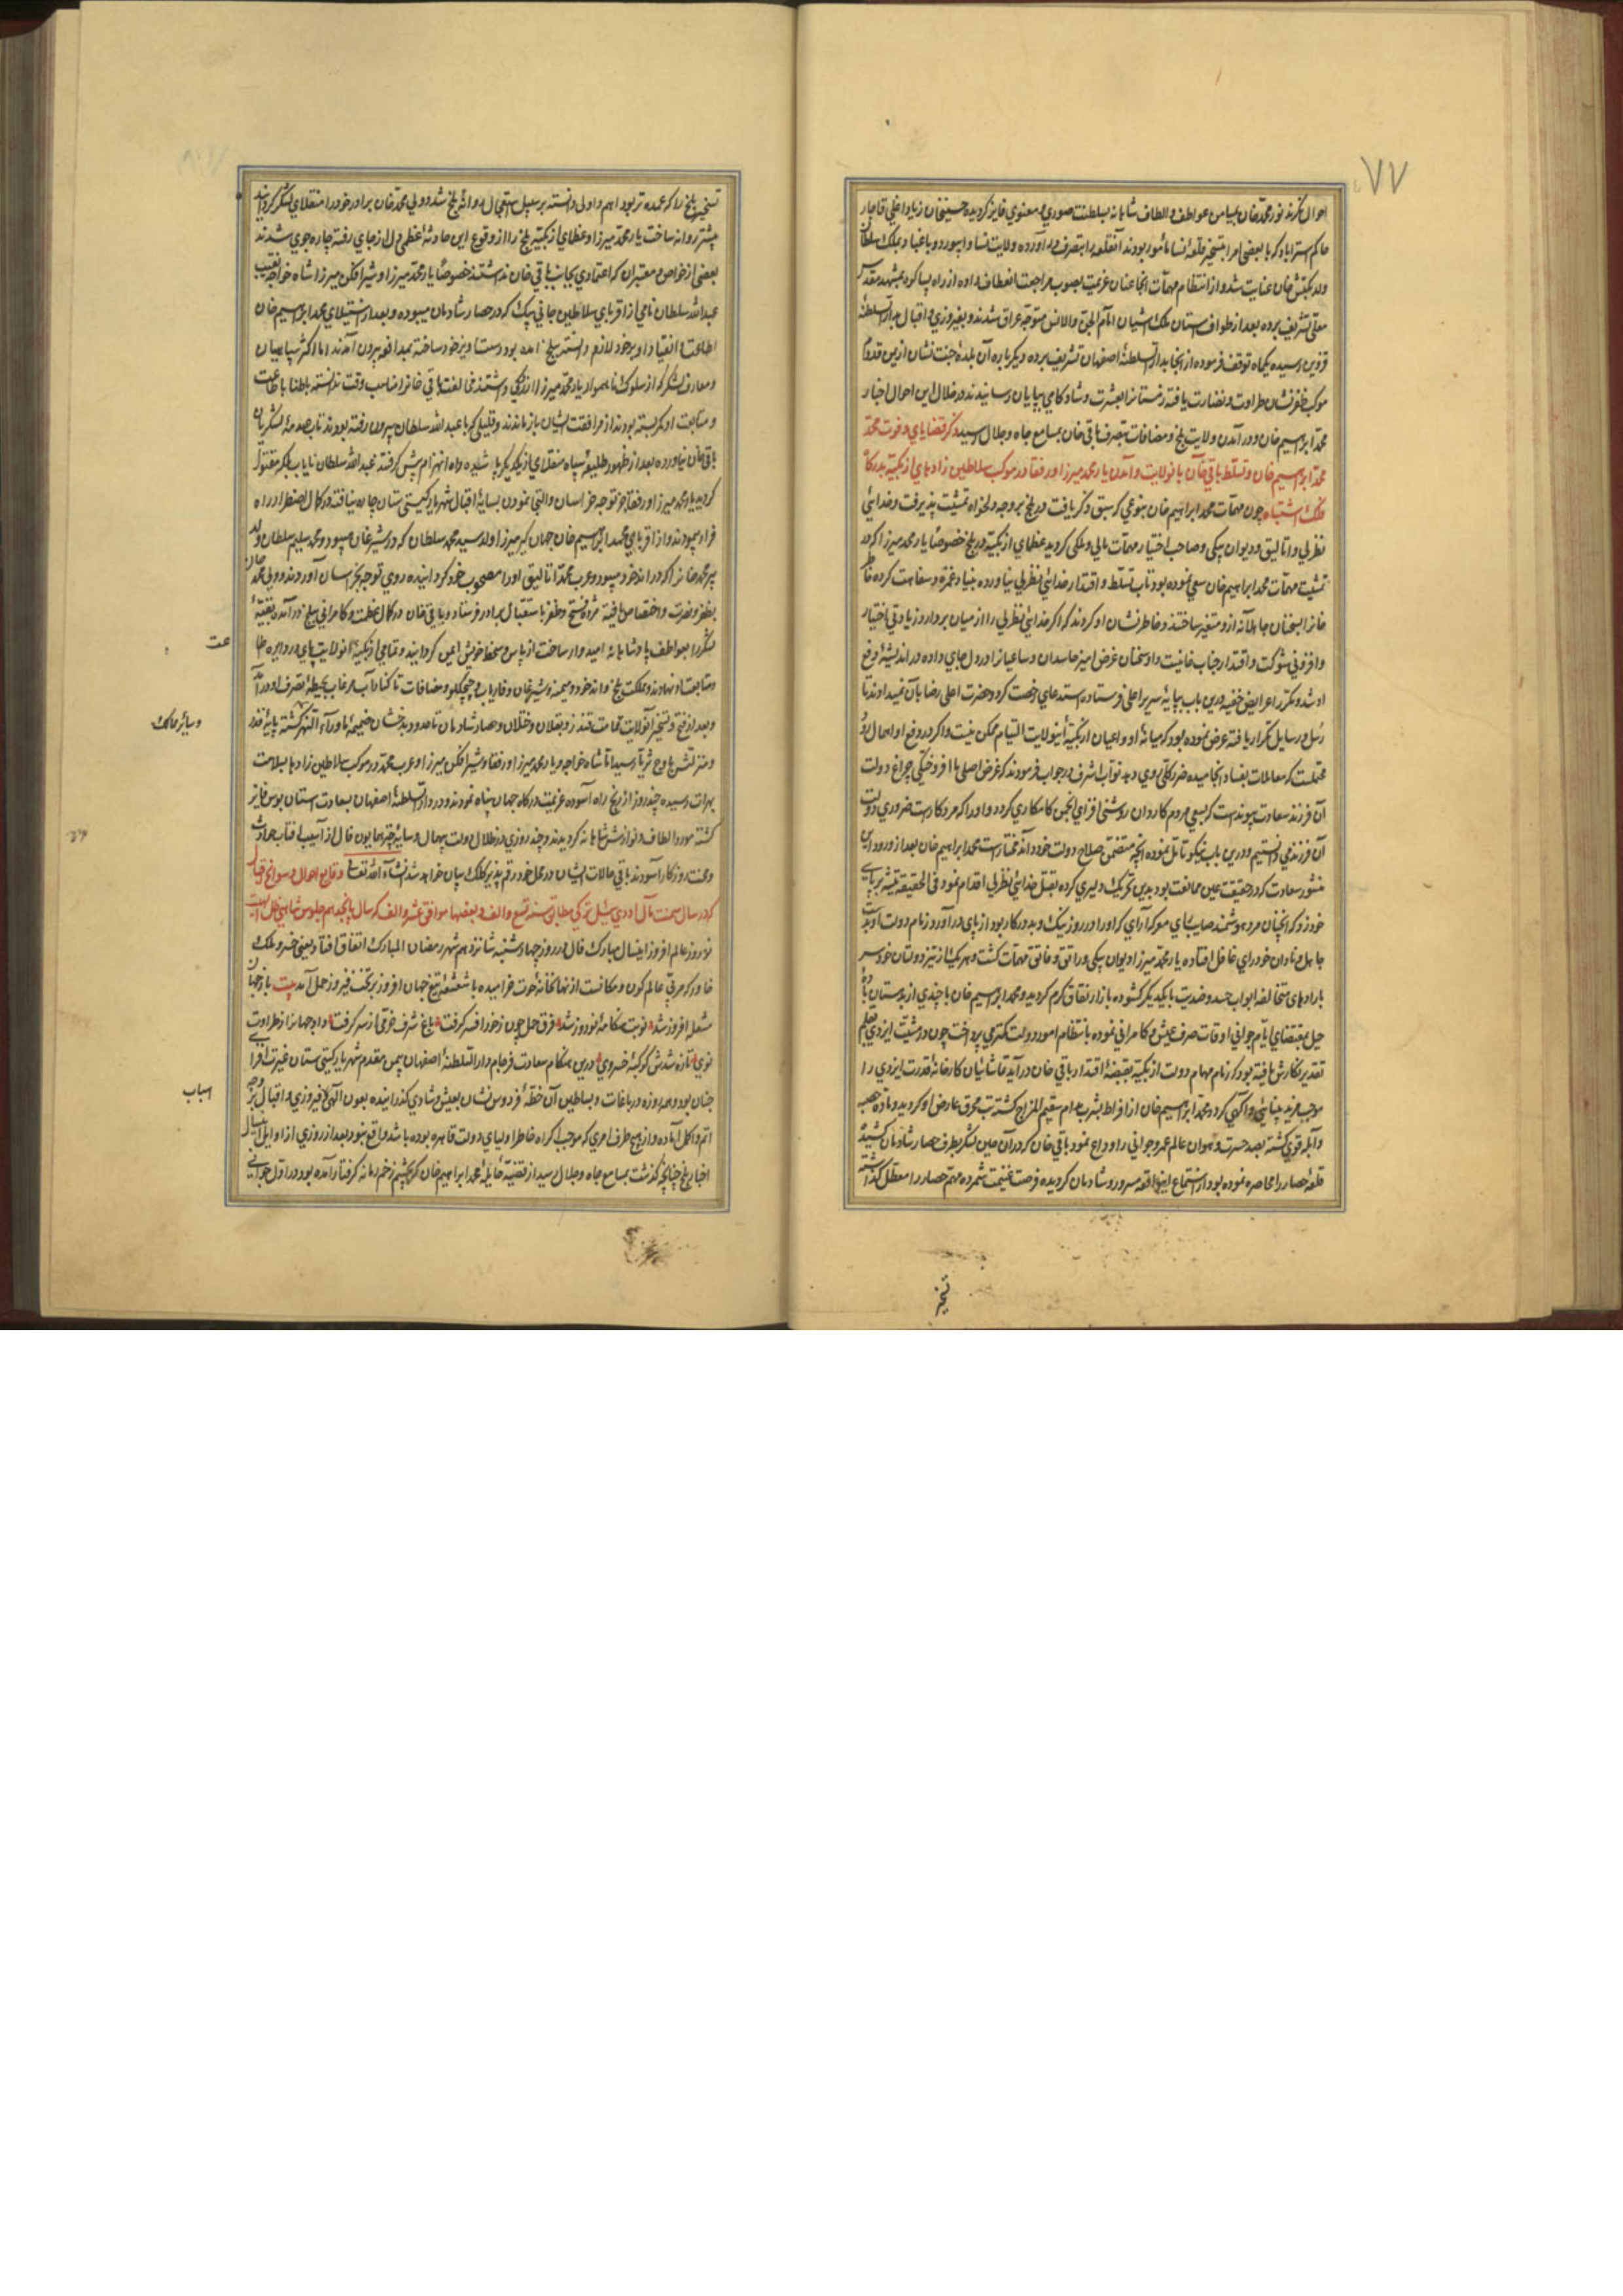 ٧٧
احوال نگرند نور محمد خان بمیامن عواطف و الطاف شاهانه بسلطنت صوری و معنوی فایز گردیده حسینخان زیاد اغلی قاجار
حاکم استراباد که با بعضی امرا بتسخیر قلعهٔ نسا مأمور بودند آنقلعه را بتصرف در آورده ولایت نسا و ابیورد و باغباد بملک سلطان
ولد بکتش خان عنایت شد و از انتظام مهمات آنجا عنان عزیمت بصوب مراجعت انعطاف داده از راه پساکوه بمشهد مقدس
معلی تشریف برده بعد از طواف آستان ملک آشیان امام الجن والانس متوجه عراق شدند و بفیروزی و اقبال بدار السلطنهٔ
قزوین رسیده یکماه توقف فرموده از آنجا بدار السلطنهٔ اصفهان تشریف برده دیگر باره آن بلدهٔ جنت نشان از یمن قدوم
موکب ظفر نشان طراوت و نضارت یافته زمستانرا بعشرت و شادکامی بپایان رسانیدند در خلال این احوال اخبار
محمد ابراهیم خان و در آمدن ولایت بلخ و مضافات بتصرف باقی خان بمسامع جاه و جلال رسید ذکر قضایای فوت محمد
محمد ابراهیم خان و تسلط باقی خان بانولایت و آمدن یار محمد میرزا و رفقا در موکب سلاطین زادهای ازبکیه بدرکاه
فلک اشتباه چون مهمات محمد ابراهیم خان بنوعی که سبق ذکر یافت در بلخ بر وجه دلخواه تمشیت پذیرفت و خدائی
نظر بی و اتالیق و دیوان بیکی و صاحب اختیار مهمات مالی و ملکی گردید عظمای ازبکیه در بلخ خصوصاً یار محمد میرزا که در
تمشیت مهمات محمد ابراهیم خان سعی نموده بود تاب تسلط و اقتدار خدائی نظر بی نیاورده بنیاد غمزه و سفاهت کرده خاطر
خانرا بسخنان جاهلانه از و متغیر ساختند و خاطر نشان او کردند که اگر خدائی نظر بی را از میان بر دارد زیادتی اختیار
و افزونی شوکت و اقتدار جناب خانیست و او سخنان غرض آمیز حاسدان و ساعیانرا در دل جای داده در اندیشهٔ دفع
او شد و مکرر اعرایض خفیه درین باب بپایهٔ سریر اعلی فرستاده استدعای رخصت کرد و حضرت اعلی رضا بآن نمیدادند تا
رسل و رسایل تکرار یافته عرض نموده بود که میانهٔ او و اعیان ازبکیهٔ اینولایت التیام ممکن نیست و اگر در دفع او اهمال رود
محتملست که معاملات بفساد انجامیده ضرر کلی روی دهد نواب اشرف در جواب فرمودند که غرض اصلی ما افروختگی چراغ دولت
آن فرزند سعادت پیوندست که بسعی مردم کاردان روشنی افزای انجمن کامکاری گردد و او را که مرد کارست ضروری دولت
آن فرزند می دانستیم و درین باب نیکو تأمل نموده آنچه متضمن صلاح دولت خود داند مختارست محمد ابراهیم خان بعد از ورود این
منشور سعادت که در حقیقت عین ممانعت بود بدین تحریک دلیری کرده بقتل خدائی نظر بی اقدام نمود فی الحقیقه تیشه بر پای
خود زد که انچنان مرد هوشمند صایب رای معرکه آرای که او را در روز نیک و بد در کار بود از پای در آورد و زمام دولت او بدست
جاهل و نادان خود رای غافل افتاده یار محمد میرزا دیوان بیکی و راتق و فاتق مهمات گشت و هر یک از نزدیکان خود سر
با رادهای متخالفه ابواب حسد و ضدیت با یکدیگر گشوده بازار نفاق گرم گردید و محمد ابراهیم خان با چندی از دوستان باده
حیل بمقتضای ایام جوانی اوقات صرف عیش و کامرانی نموده بانتظام امور دولت کمتر می پرداخت چون در مشیت ایزدی بقلم
تقدیر نگارش یافته بود که زمام مهام دولت ازبکیه بقبضهٔ اقتدار باقی خان در آید تماشائیان کارخانهٔ قدرت ایزدی را
موجب مزید بینایی و آگهی گردد محمد ابراهیم خان از افراط بشرب مدام سقیم المزاج گشته تب محرق عارض او گردید و ماده حصبه
و آبله قوی گشته بصد حسرت و هموان عالم عمر و جوانی را وداع نمود باقی خان که در آن حین لشکر بطرف حصار شادمان کشیده
قلعهٔ حصار را محاصره نموده بود از استماع این واقعه مسرور و شادمان گردیده فرصت غنیمت شمرده مهم حصار را معطل گذاشته
تسخیر
تسخیر بلخ را که عمده تر بود اهم و اولی دانسته بر سبیل استعجال روانهٔ بلخ شد و ولی محمد خان برادر خود را منقلای لشکر گردانیده
پیشتر روانه ساخت یار محمد میرزا و عظمای ازبکیه بلخ را از وقوع این حادثهٔ عظمی دل از جای رفته چاره جوی شدند
بعضی از خواص و معتبران که اعتمادی بجانب باقی خان نداشتند خصوصاً یار محمد میرزا و شیر افکن میرزا شاه خواجه نقیب
عبدالله سلطان نامی از اقربای سلاطین جانی بیک که در حصار شادمان میبوده و بعد از استیلای محمد ابراهیم خان
اطاعت و انقیاد او بر خود لازم دانسته ببلخ آمده بود دستاویز خود ساخته بمدافعه بیرون آمدند اما اکثر سپاهیان
و معارف لشکر که از سلوک ناهموار یار محمد میرزا آزردگی داشتند مخالفت باقی خانرا مناسب وقت ندانسته باطناً باطاعت
و متابعت او کمر بسته بودند از مرافقت ایشان باز ماندند و قلیلی که با عبد الله سلطان بیرون رفته بودند تاب صدمهٔ لشکر
باقی خان نیاورده بعد از ظهور طلیعهٔ سپاه منقلای از یکدیگر پاشیده راه انهزام پیش گرفتند عبد الله سلطان نایاب فکر مقتول
گردید یار محمد میرزا و رفقا جز توجه خراسان و التجا نمودن بسایهٔ اقبال شهریار گیتی ستان چاره نیافته در کمال اضطرار راه
فرار پیمودند و از اقربای محمد ابراهیم خان جهانگیر میرزا ولد سید محمد سلطان که در شبرغان میبود و محمد سلیم سلطان ولد
پیر محمد خانرا که در اندخود میبود و عرب محمد اتالیق او را مصحوب خود گردانیده روی توجه بخراسان آوردند و ولی محمد خان
بظفر و نصرت اختصاص یافته مژدهٔ فتح و ظفر باستقبال برادر فرستاد و باقی خان در کمال عظمت و کامرانی ببلخ در آمد و بقیهٔ
لشکر را بعواطف پادشاهانه امیدوار ساخت از باس و سخط خویش ایمن گردانید و تمامی ازبکیهٔ آنولایت پای در دایره
متابعت او نهادند و مملکت بلخ و اندخود و میمنه و شبرغان و فاریاب و چچکتو و مضافات تا کنار آب مرغاب بحیطهٔ تصرف او در آمد
و بعد از فتح و تسخیر آنولایت تمامت قندز و بقلان و ختلان و حصار شادمان تا حدود بدخشان ضمیمهٔ ماوراء النهر گشته پایهٔ قدر
و منزلتش باوج ثریا رسید اما شاه خواجه و یار محمد میرزا و رفقا و شیر افکن میرزا و عرب محمد در موکب سلاطین زادها بسلامت
بهرات رسیده چند روز از رنج راه آسوده عزیمت درگاه جهان پناه نمودند و در دار السلطنهٔ اصفهان بسعادت آستان بوس فایز
گشته مورد الطاف و نوازش شاهانه گردیدند و چند روزی در ظلال دولت بیهمال و سایهٔ چتر همایون فال از آسیب آفتاب حوادث
و محنت روزگار آسودند باقی حالات ایشان در محل خود رقم پذیر کلک بیان خواهد شد انشاء الله تعالی وقایع احوال و سوانح اقبال
که در سال میمنت مآل اودی ئیل ترکی مطابق سنه تسع و الف و بعضها موافق عشر و الف که سال پانجدهم جلوس شاهی ظل الهیست
نوروز عالم افروز اینسال مبارک فال در روز چهارشنبه شانزدهم شهر رمضان المبارک اتفاق افتاد یعنی خسرو ملک
خاور که مربی عالم کون و مکانست از نهانخانهٔ حوت خرامیده با شعشعهٔ تیغ جهان افروز بر تخت فیروز حمل آمد بیت باز جهان
مشعله افروز شد نوبت هنگامهٔ نوروز شد فرق حمل چون ز خور افسر گرفت باغ شرف خرمی از سر گرفت داد جهانرا ز طراوت
نوی تازه شدش کوکبهٔ خسروی درین هنگام سعادت فرجام دار السلطنهٔ اصفهان بیمن مقدم شهریار گیتی ستان غیرت افزای
جنان بود و همه روزه در باغات و بساطین آن خطهٔ فردوس نشان بعیش و شادی گذرانیده بعون الهی فیروزی و اقبال بر وجه
اتم و اکمل آماده و از هیچ طرف امری که موجب اکراه خاطر اولیای دولت قاهره بوده باشد واقع نبود بعد از روزی از اوایل اینسال
اخبار بلخ چنانچه گذشت بمسامع جاه و جلال رسید از قضیهٔ هایلهٔ محمد ابراهیم خان که بچشم زخم زمانه گرفتار آمده بود در اول جوانی
عت
و سایر ممالک
اسباب